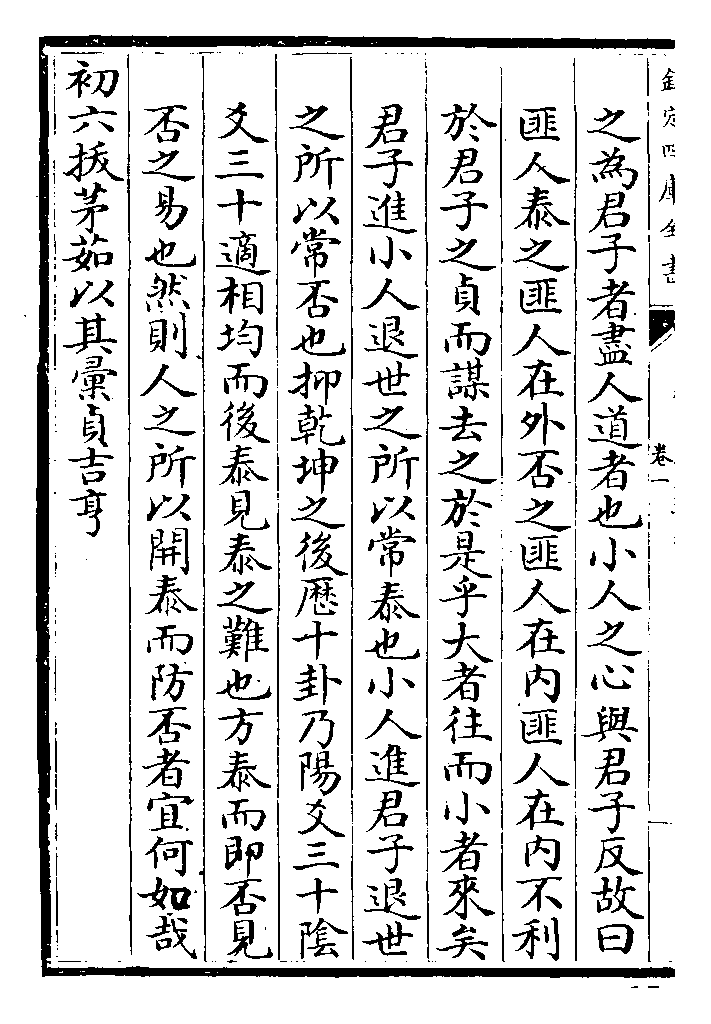 欽定四庫全書
卷一
之為君子者盡人道者也小人之心與君子反故曰
匪人泰之匪人在外否之匪人在内匪人在内不利
於君子之貞而謀去之於是乎大者往而小者來矣
君子進小人退世之所以常泰也小人進君子退世
之所以常否也抑乾坤之後歴十卦乃陽爻三十陰
爻三十適相均而後泰見泰之難也方泰而即否見
否之易也然則人之所以開泰而防否者宜何如哉
初六拔茅茹以其彙貞吉亨